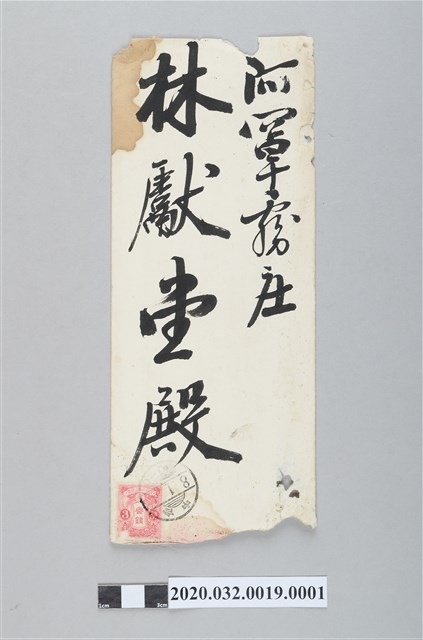 阿罩霧庄
林獻堂殿
8
1
3
1cm
3cm
2020.032.0019.0001